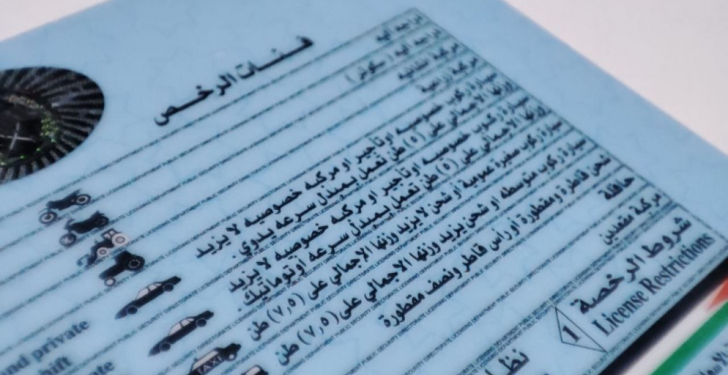 فئات الرخص
دراجة آلية
دراجة آلية (سكوتر)
مركبة زراعية
سيارة ركوب خصوصيه او تأجير او مركبه خصوصيه لا يزيد
وزنها الاجمالي على (٥) طن تعمل بمبدل سرعه يدوي.
سيارة ركوب خصوصيه او تأجير او مركبه خصوصيه لا يزيد
وزنها الاجمالي على (٥) طن تعمل بمبدل سرعه اوتوماتيك.
سيارة ركوب صغيرة عموميه او شحن لا يزيد وزنها الاجمالي على (٧,٥) طن
سيارة ركوب متوسطه او شحن يزيد وزنها الاجمالي على (٧,٥) طن
شحن قاطر ومقطورة او رأس قاطر ونصف مقطورة
حافلة
مركبة مقعدين
شروط الرخصة
License Restrictions
1
TAXI
nd private
hift